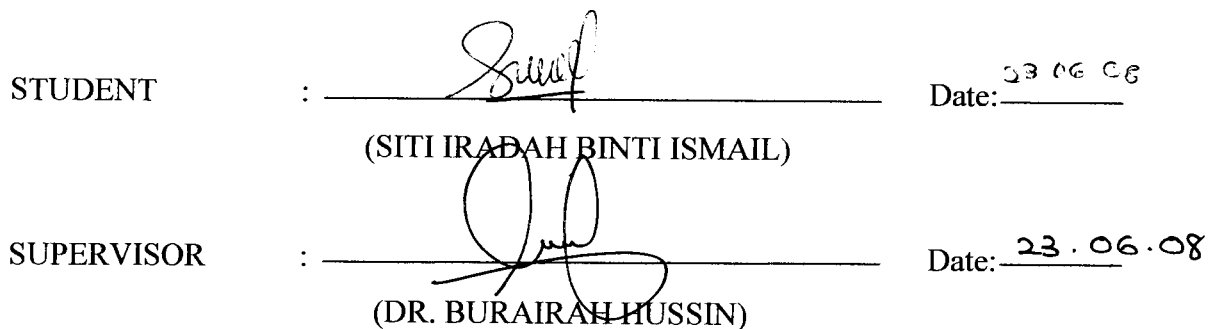 STUDENT : Date: 23 06 08
(SITI IRADAH BINTI ISMAIL)
SUPERVISOR : Date: 23.06.08
(DR. BURAIRAH HUSSIN)